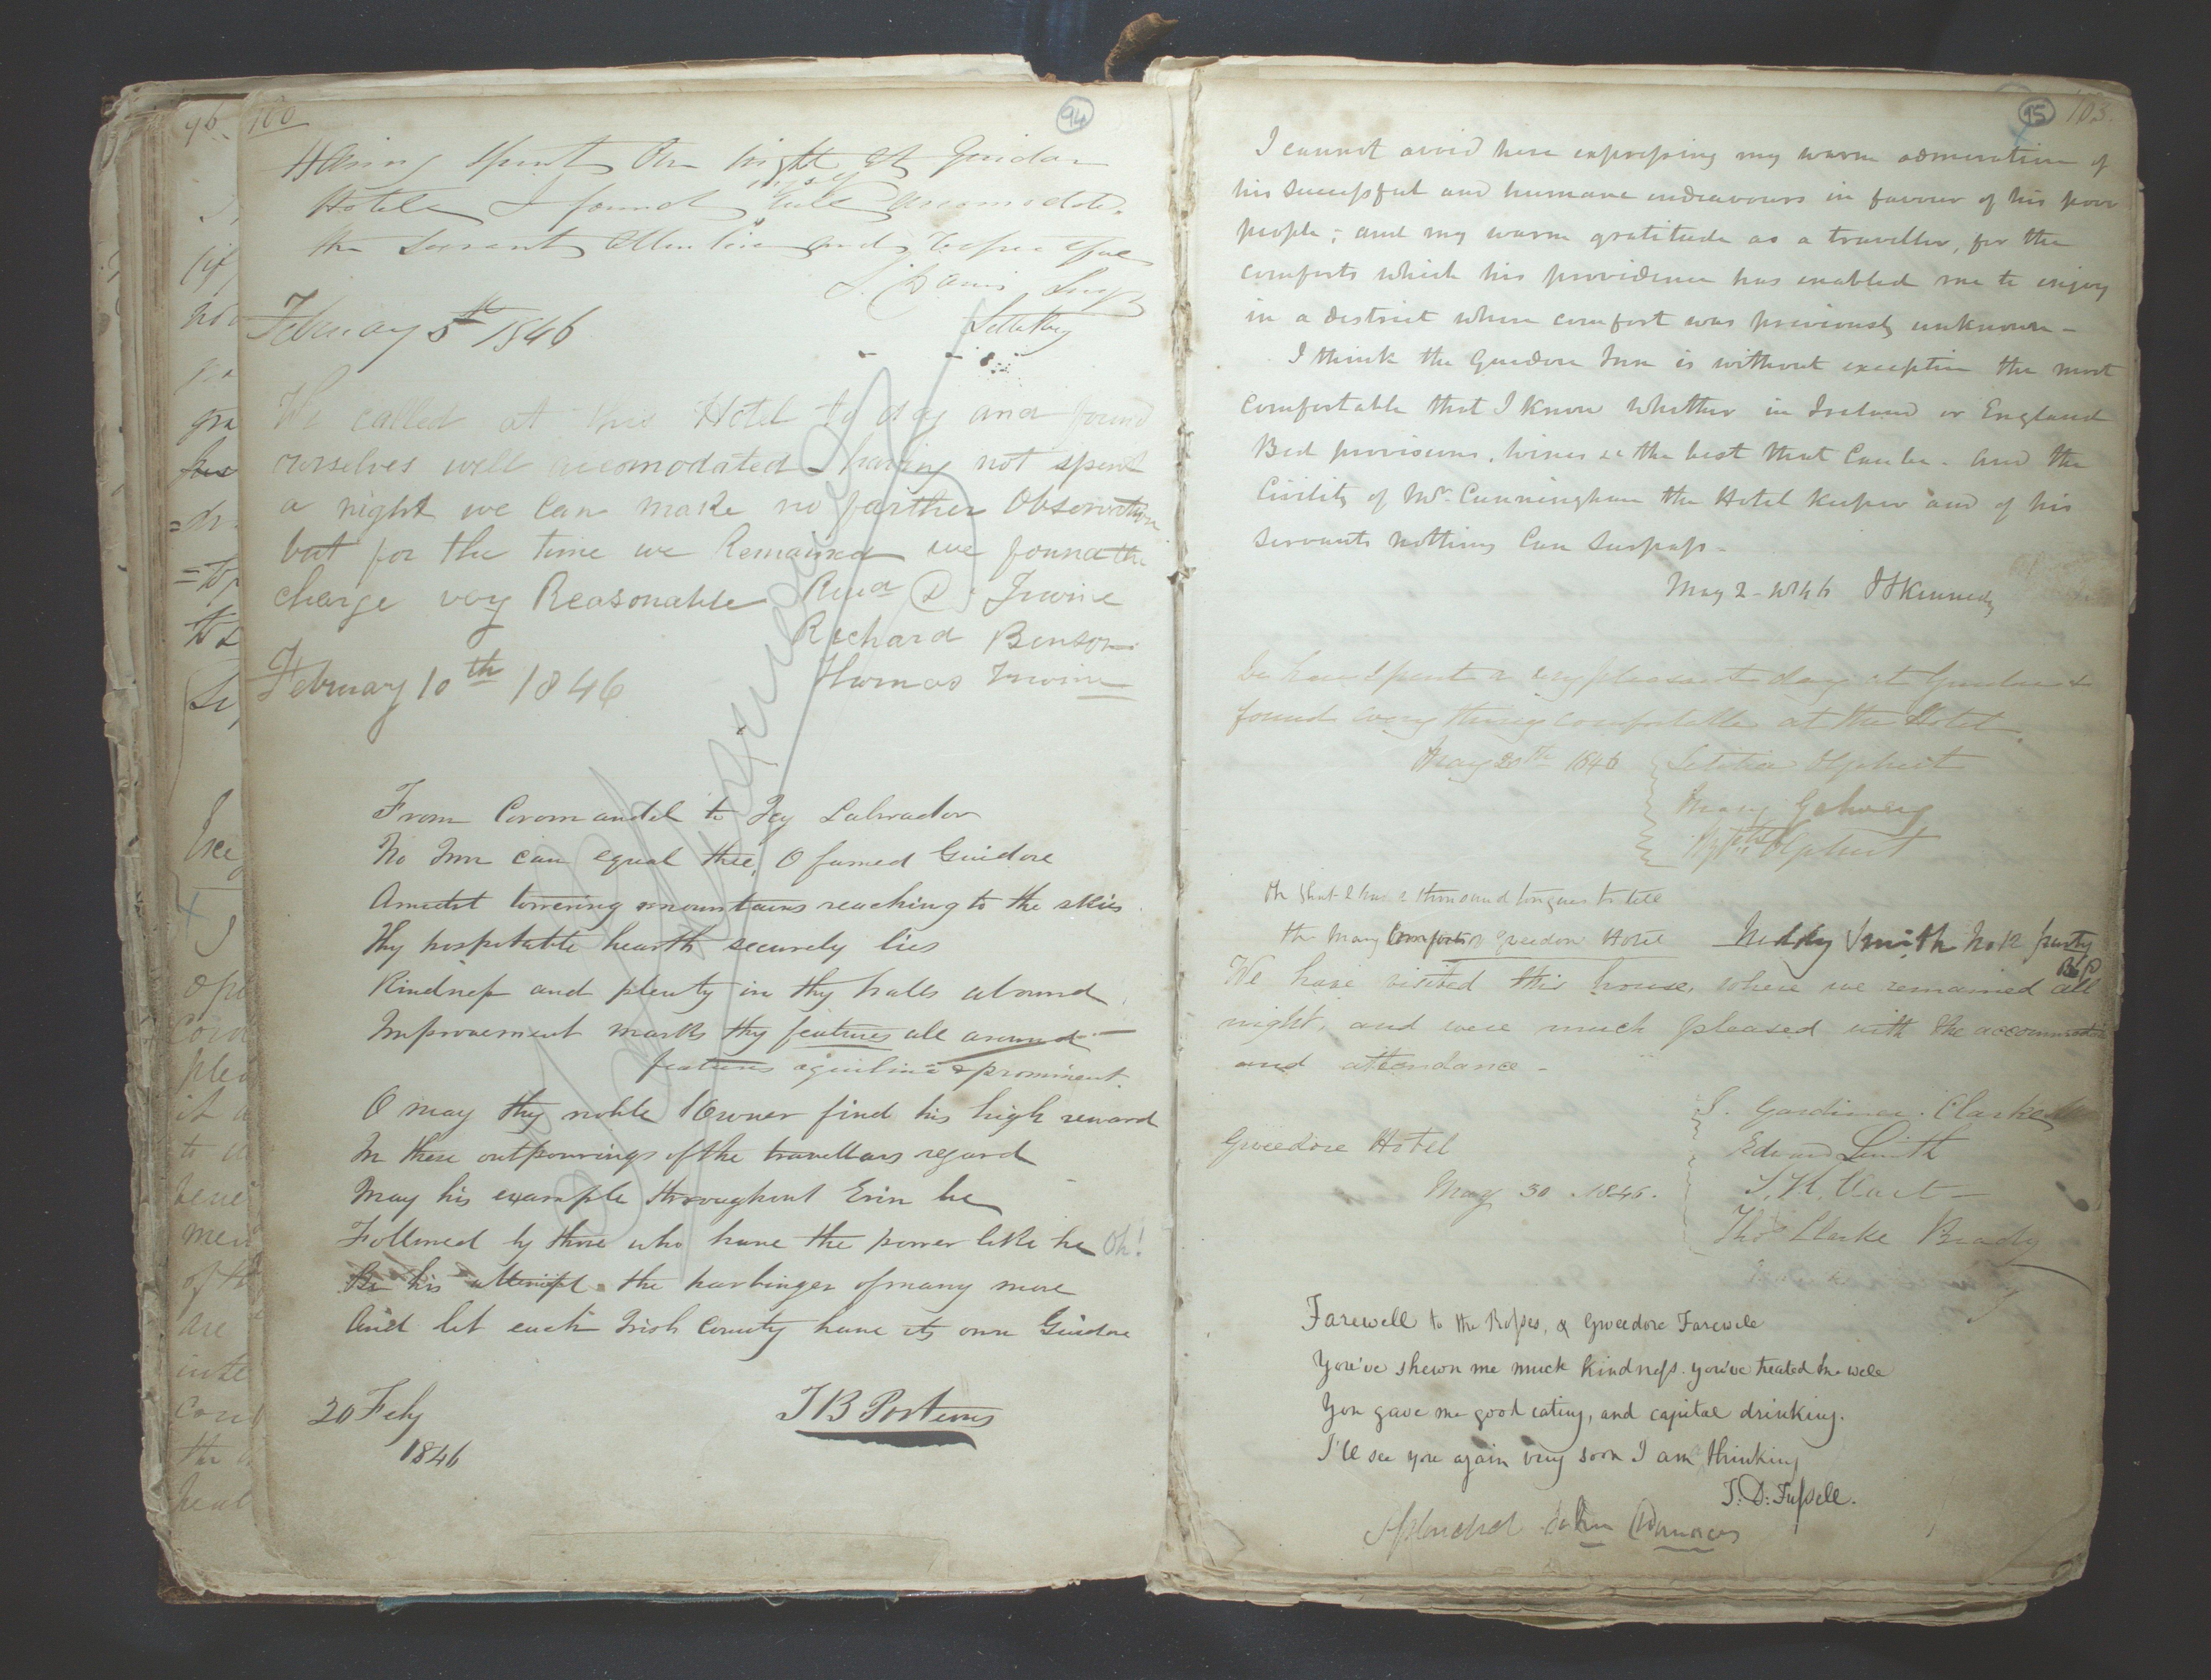 100
94
Having spent One night at Guidore
Hotel I found myself well accomodated
the Servant attentive and
Letterkeny
February 5th 1846
We called at this Hotel to day and found
ourselves well accomodated having not spent
a night we can make no farther Observation
but for the time we Remained we found the
charge very Reasonable Revd D. Irwine
Richard Benson
Thomas Irwine
February 10th 1846
From Coromandel to Icy Labrador
No Inn can equal thee, O famed Guidore
Amidst towering mountains reaching to the skies
Thy hospitable hearth securely lies
Kindness and plenty in thy halls abound
Improvement marks thy features all around
features aquiline & prominent.
O may thy noble Owner find his high reward
In these outpourings of the travellers regard
May his example throughout Erin be
Followed by those who have the power like he Oh!
Be his attempt the harbinger of many more
And let each Irish County have its own Guidore
20 Feby
1846
T B Porteus
15
103.
I cannot avoid here expressing my warm admiration of
his successful and humane endeavours in favour of his poor
people; and my warm gratitude as a traveller, for the
comforts which his providence has enabled me to enjoy
in a district where comfort was previously unknown -
I think the Guedore Inn is without exception the most
comfortable that I know whether in Ireland or England
Bed provisions, wines &c the best that can be. and the
Civility of Mr. Cunningham the Hotel keeper and of his
servants nothing can surpass -
May 2 - 1846 Kennedy
We have spent a very pleasant day at Guedore &
found every thing comfortable at the Hotel.
May 20th 1846 Letitia Olphert
Mary
Olphert
Oh that I had a thousand tongues to tell
the many Comforts of Greedore Hotel Neddy Smith No 12 party
We have visited this house, where we remained all
night, and were much pleased with the accommodation
and attendance -
J. Gardiner. Clarke
Gweedore Hotel
Edward Smith
May 30. 1846.
Thos Clarke Brady
Farewell to the Rosses, & Gweedore Farewell
You've shewn me much kindness. you've treated me well
You gave me good eating, and capital drinking.
I'll see you again very soon I am thinking
T. D. Fussell.
John